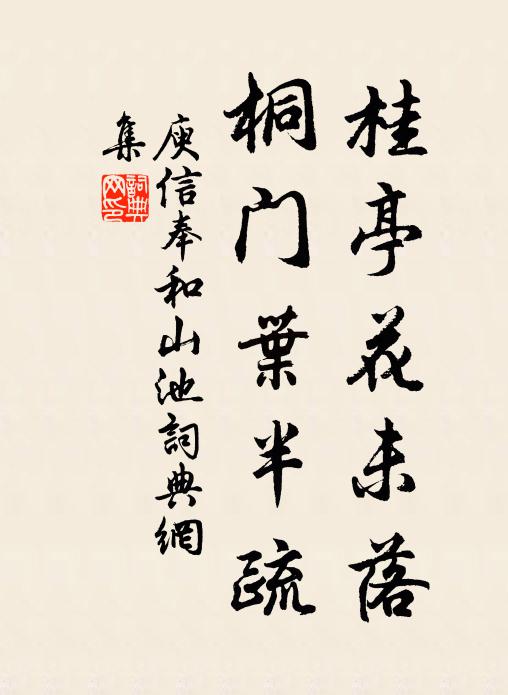 桂亭花未落
桐门葉半疏
庾信奉和山池詞典網
集
詞典
网印